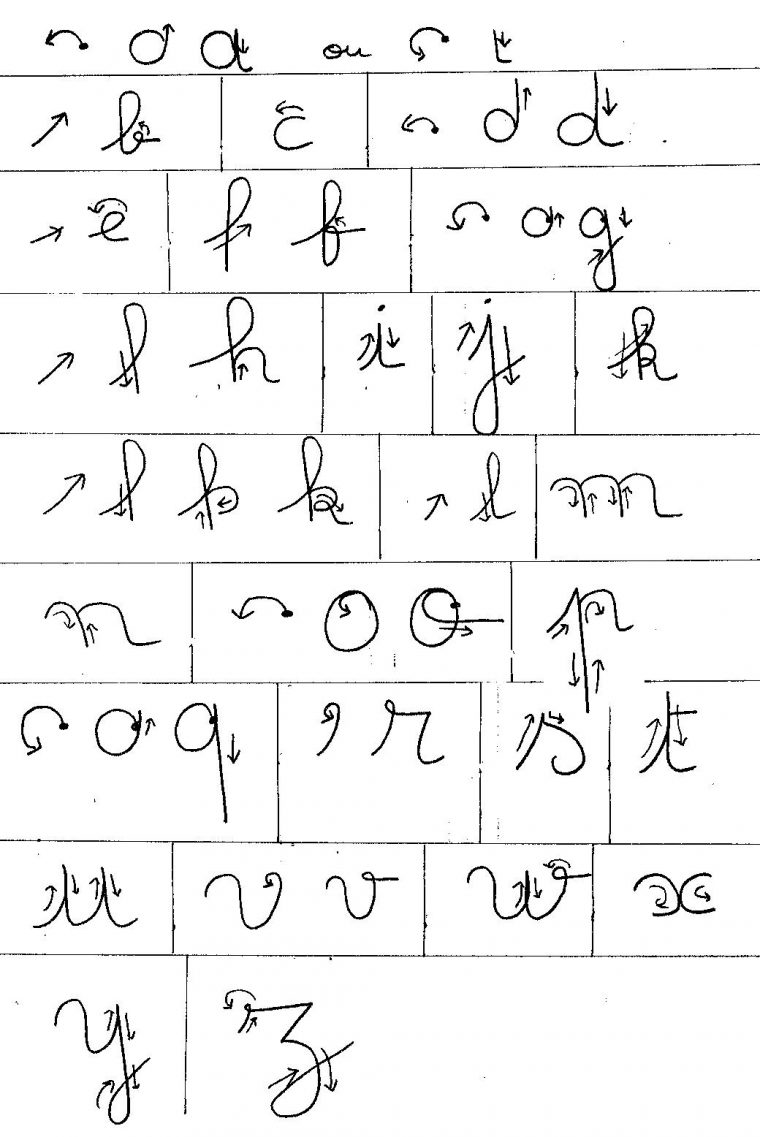 o a ou ι
b c d d
e f f o g
l h i j k
l k k l m
n o o p
o q r s t
u v v w x
y z